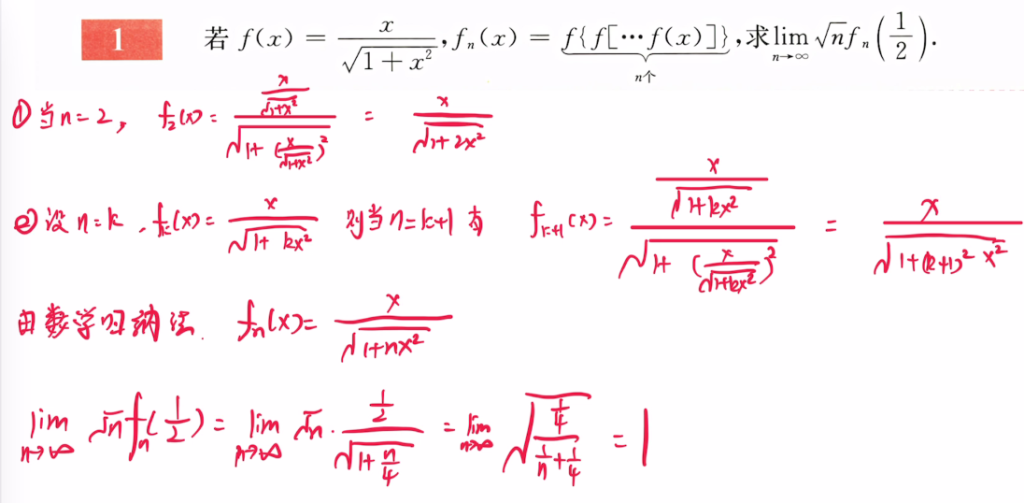 1 若 f(x) = \frac{x}{\sqrt{1+x^2}}, f_n(x) = \underbrace{f\{f[\cdots f(x)]\}}_{n个}, 求 \lim_{n→∞} \sqrt{n} f_n\left(\frac{1}{2}\right).
①当n=2, f_2(x) = \frac{\frac{x}{\sqrt{1+x^2}}}{\sqrt{1+(\frac{x}{\sqrt{1+x^2}})^2}} = \frac{x}{\sqrt{1+2x^2}}
②设n=k, f_k(x) = \frac{x}{\sqrt{1+kx^2}} 则当n=k+1有 f_{k+1}(x) = \frac{\frac{x}{\sqrt{1+kx^2}}}{\sqrt{1+(\frac{x}{\sqrt{1+kx^2}})^2}} = \frac{x}{\sqrt{1+(k+1)^2 x^2}}
由数学归纳法. f_n(x) = \frac{x}{\sqrt{1+nx^2}}
\lim_{n→∞} \sqrt{n} f_n(\frac{1}{2}) = \lim_{n→∞} \sqrt{n} · \frac{\frac{1}{2}}{\sqrt{1+\frac{n}{4}}} = \lim_{n→∞} \sqrt{\frac{\frac{1}{4}}{\frac{1}{n}+\frac{1}{4}}} = 1